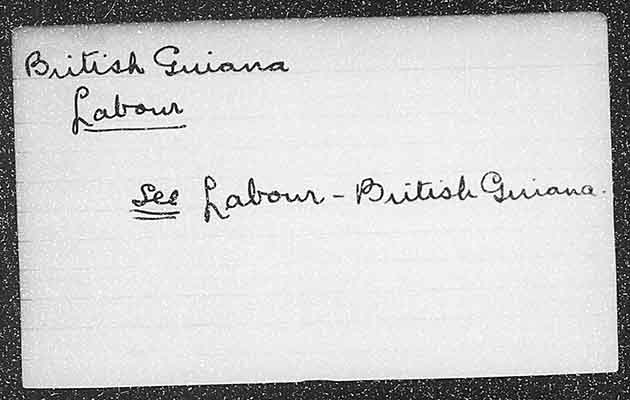 British Guiana
Labour
See Labour - British Guiana.